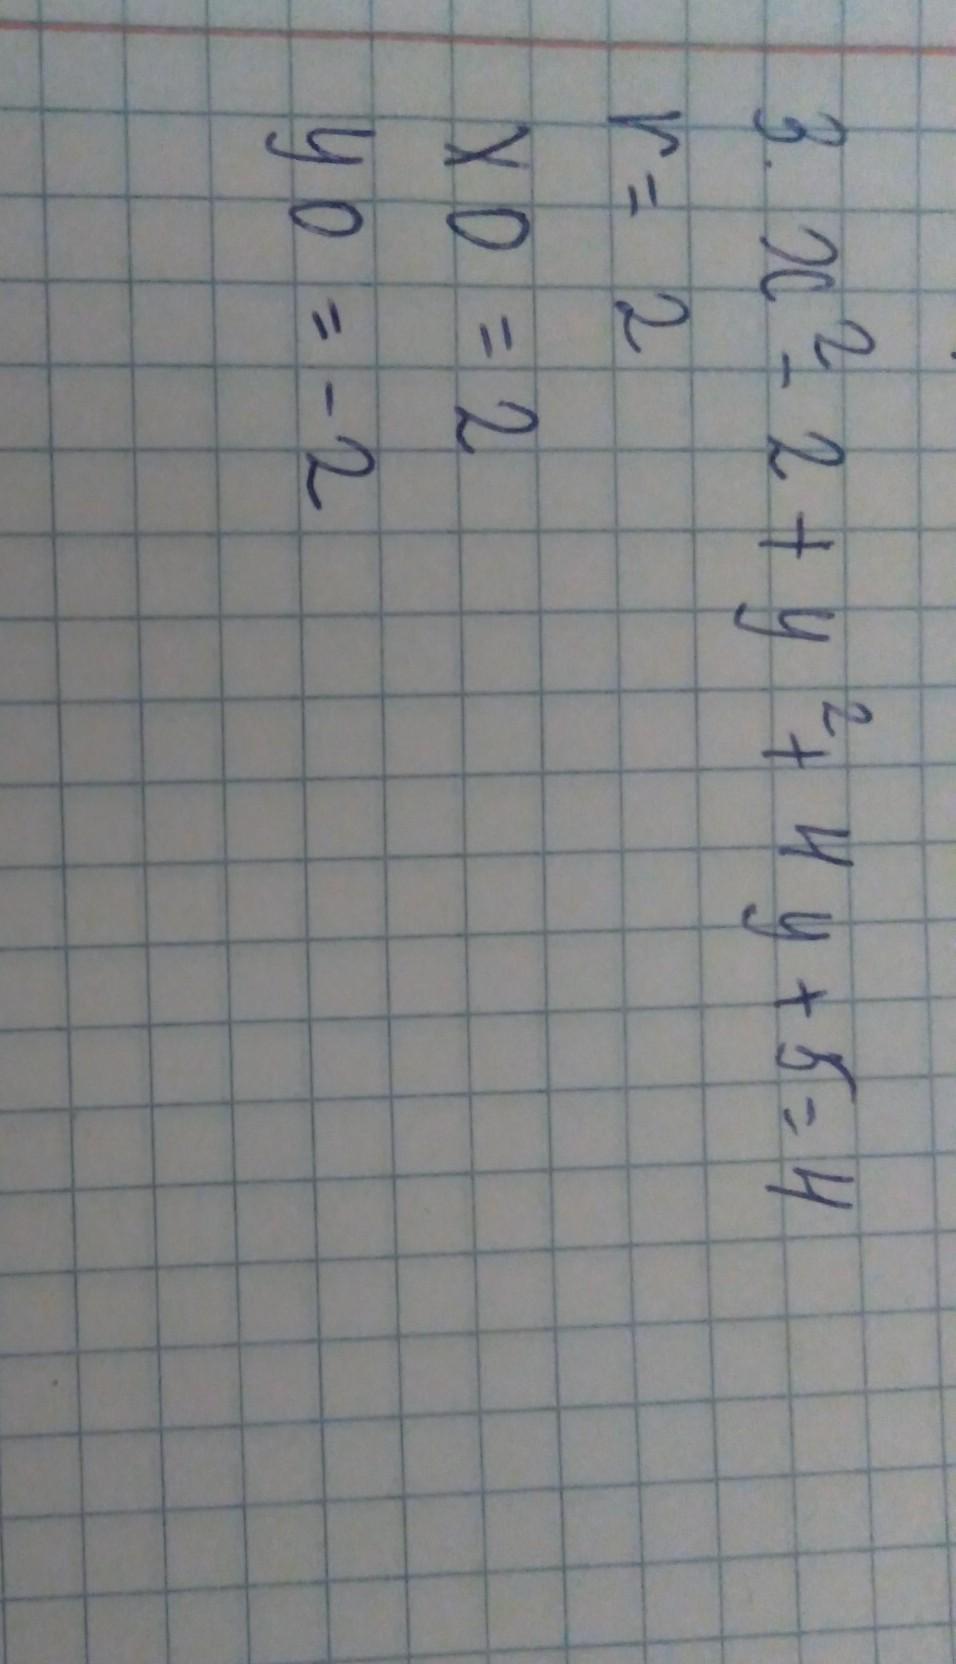 3. x² - 2 + y² + 4y + 5 = 4
r = 2
x0 = 2
y0 = -2